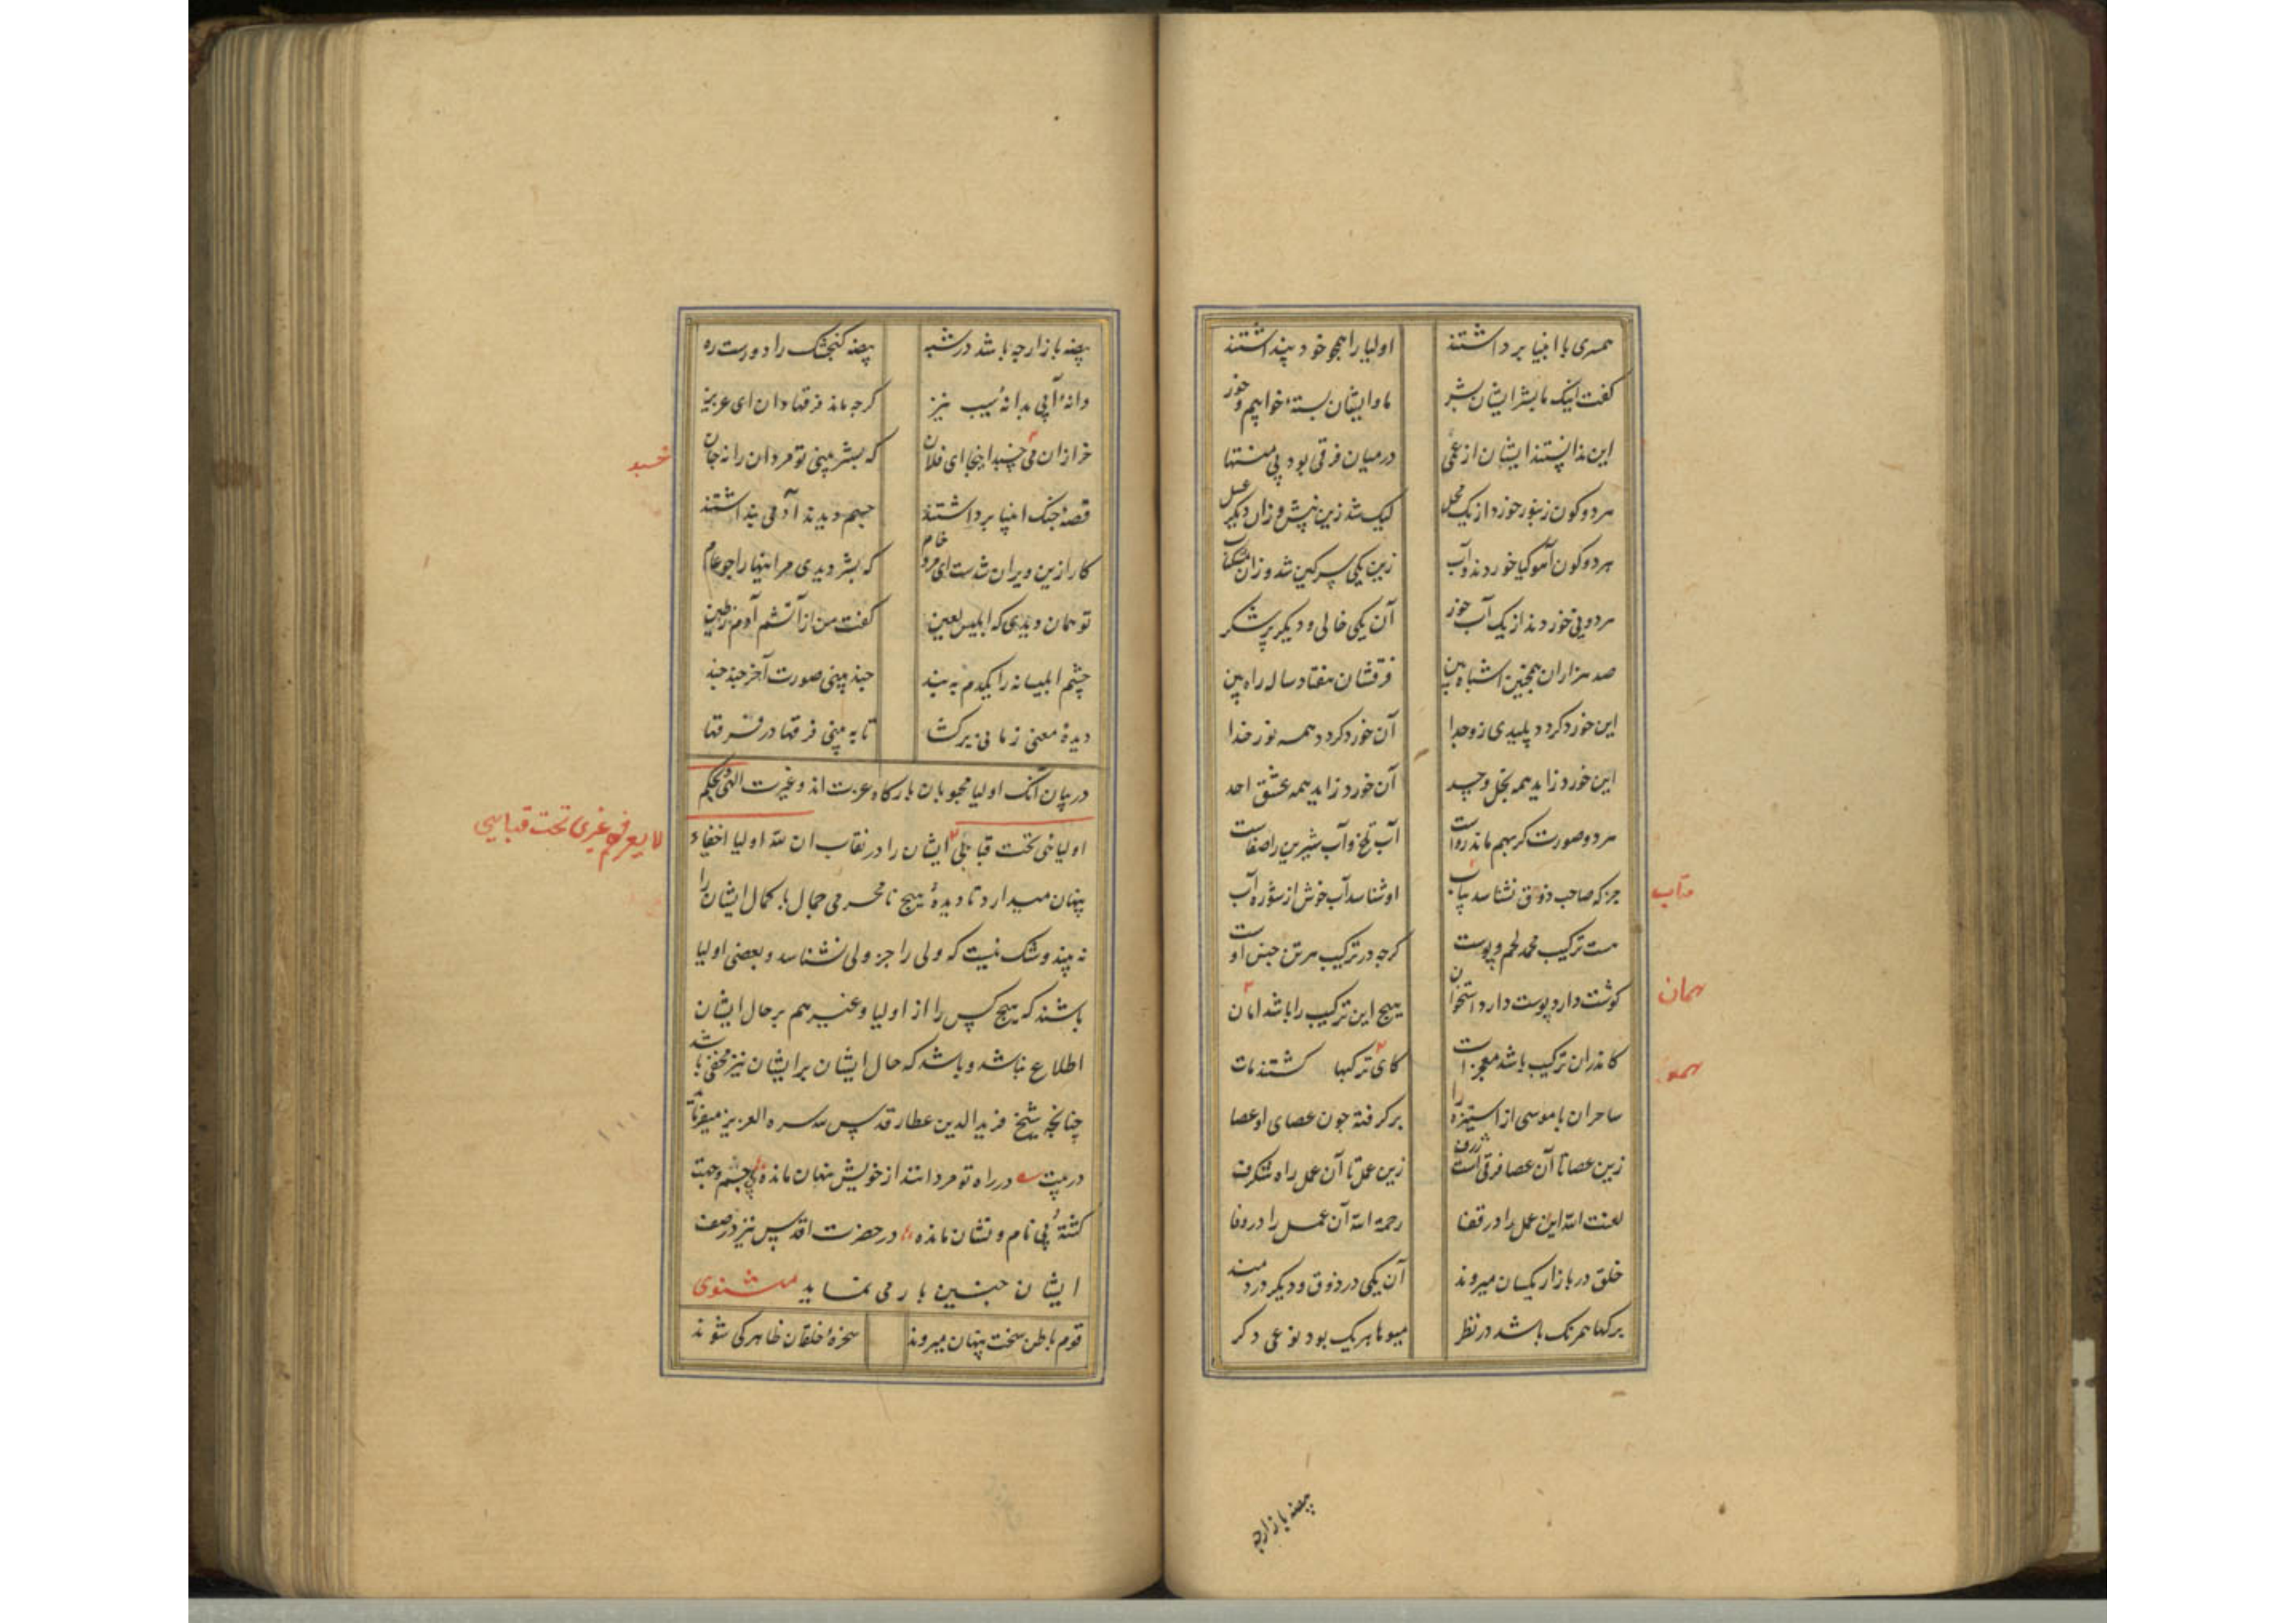 همسری با انبیا برداشتند اولیا را همچو خود پنداشتند
کفت اینک ما بشر ایشان بشر ما و ایشان بستهٔ خوابیم و خور
این ندانستند ایشان از عمی در میان فرقی بود بی منتها
هر دو کون زنبور خورد از یک محل لیک شد زین نیش و زان دیکر عسل
هر دو کون آهو کیا خوردند و آب زین یکی سرکین شد و زان مشکناب
هر دو نی خوردند از یک آب خور آن یکی خالی و دیکر پر شکر
صد هزاران همچنین اشباه بین فرقشان هفتاد ساله راه بین
این خورد کردد پلیدی زو جدا آن خورد کردد همه نور خدا
این خورد زاید همه بخل و حسد آن خورد زاید همه عشق احد
هر دو صورت کر بهم ماند رواست آب تلخ و آب شیرین را صفاست
جز که صاحب ذوق نشناسد بیاب او شناسد آب خوش از شوره آب
هست ترکیب محمد لحم و پوست کرچه در ترکیب هر تن جنس اوست
کوشت دارد پوست دارد استخوان هیچ این ترکیب را باشد امان
کاندران ترکیب باشد معجزات کای ترکبها کشتند مات
ساحران با موسی از استیزه را بر کرفته چون عصای او عصا
زین عصا تا آن عصا فرقی است ژرف زین عمل تا آن عمل راه شکرف
لعنت الله این عمل را در قفا رحمة الله آن عمل را در وفا
خلق در بازار یکسان میروند آن یکی در ذوق و دیکر دردمند
برکها همرنک باشد در نظر میوها هر یک بود نوعی دکر
متاب
همان
بیضه باز ارچه
بیضه باز ارچه باشد در شبه بیضه کنجشک را دورست ره
دانهٔ آبی بدانهٔ سیب نیز کرچه ماند فرقها دان ای عزیز
خر ازان می چسبد اینجا ای فلان که بشر بینی تو مردان را نه جان
قصد جنک انبیا برداشتند جسم دیدند آدمی پنداشتند
کار ازین ویران شدست ای مرد خام که بشر دیدی مر اینها را چو عام
تو همان دیدی که ابلیس لعین کفت من از آتشم آدم ز طین
چشم ابلیسانه را یکدم به بند چند بینی صورت آخر چند چند
دیدهٔ معنی زمانی برکشا تا به بینی فرقها در فرقها
در بیان آنک اولیا محبوبان بارکاه عزت اند و غیرت الهی بحکم
اولیائی تحت قبائلی ایشان را در نقاب ان لله اولیا اخفیاء
پنهان میدارد تا دیدهٔ هیچ نامحرمی جمال با کمال ایشان را
نه بیند و شک نیست که ولی را جز ولی نشناسد و بعضی اولیا
باشند که هیچ کس را از اولیا و غیرهم بر حال ایشان
اطلاع نباشد و باشد که حال ایشان بر ایشان نیز مخفی باشد
چنانچه شیخ فریدالدین عطار قدس سره العزیز میفرماید
در بیت در راه تو مردانند از خویش نهان مانده بی جسم و جهت
کشتهٔ بی نام و نشان مانده در حضرت اقدس نیز در صفت
ایشان چنین بار می نماید مثنوی
قوم باطن سخت پنهان میروند سخرهٔ خلقان ظاهر کی شوند
خسبد
لا یعرفهم غیری تحت قبایی